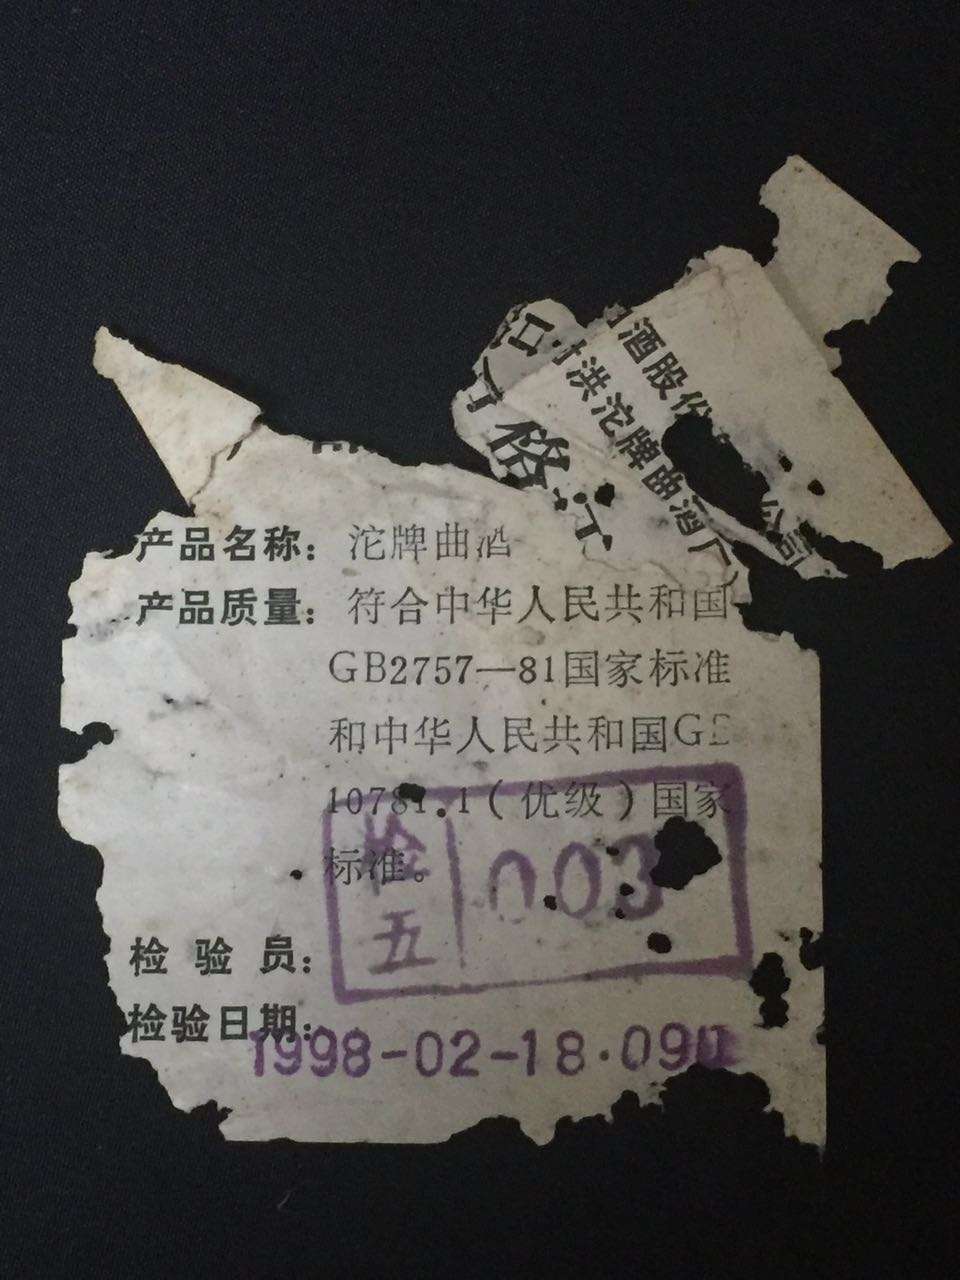 酒股份
公司
洪沱牌曲酒厂）
格
产品名称：沱牌曲酒
产品质量：符合中华人民共和国
GB2757—81国家标准
和中华人民共和国GB
10781.1（优级）国家
标准。
检五 003
检验员：
检验日期：
1998-02-18·090